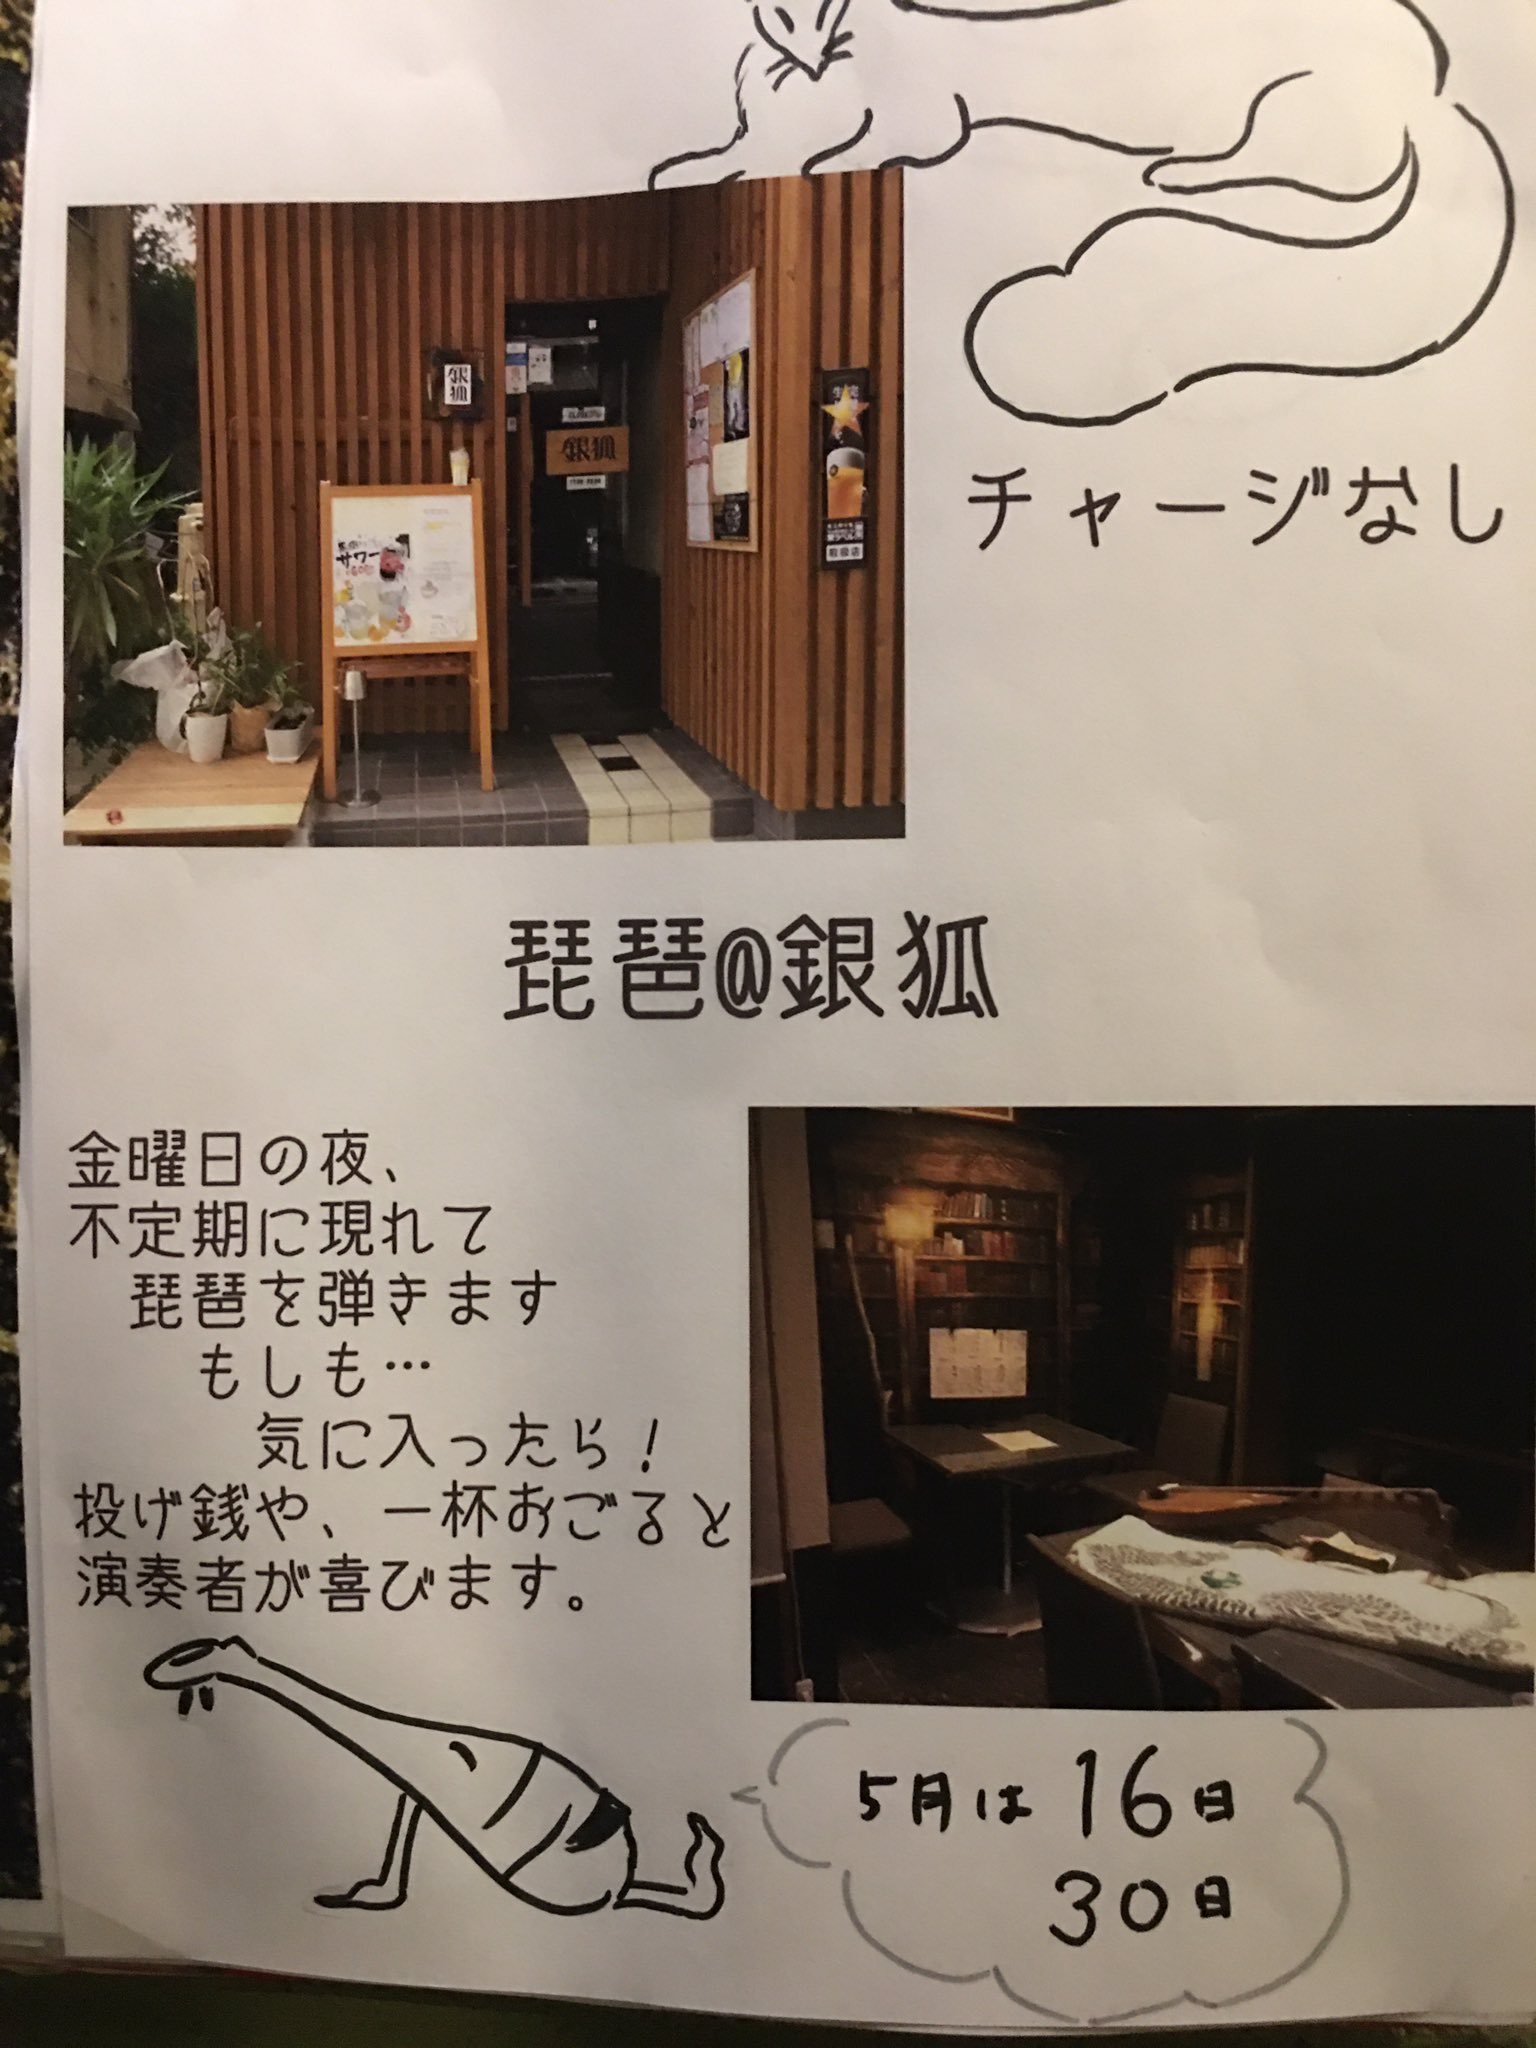 銀狐
銀狐
サワー
取扱店
チャージなし
琵琶@銀狐
金曜日の夜、
不定期に現れて
琵琶を弾きます
もしも…
気に入ったら！
投げ銭や、一杯おごると
演奏者が喜びます。
5月は16日
30日